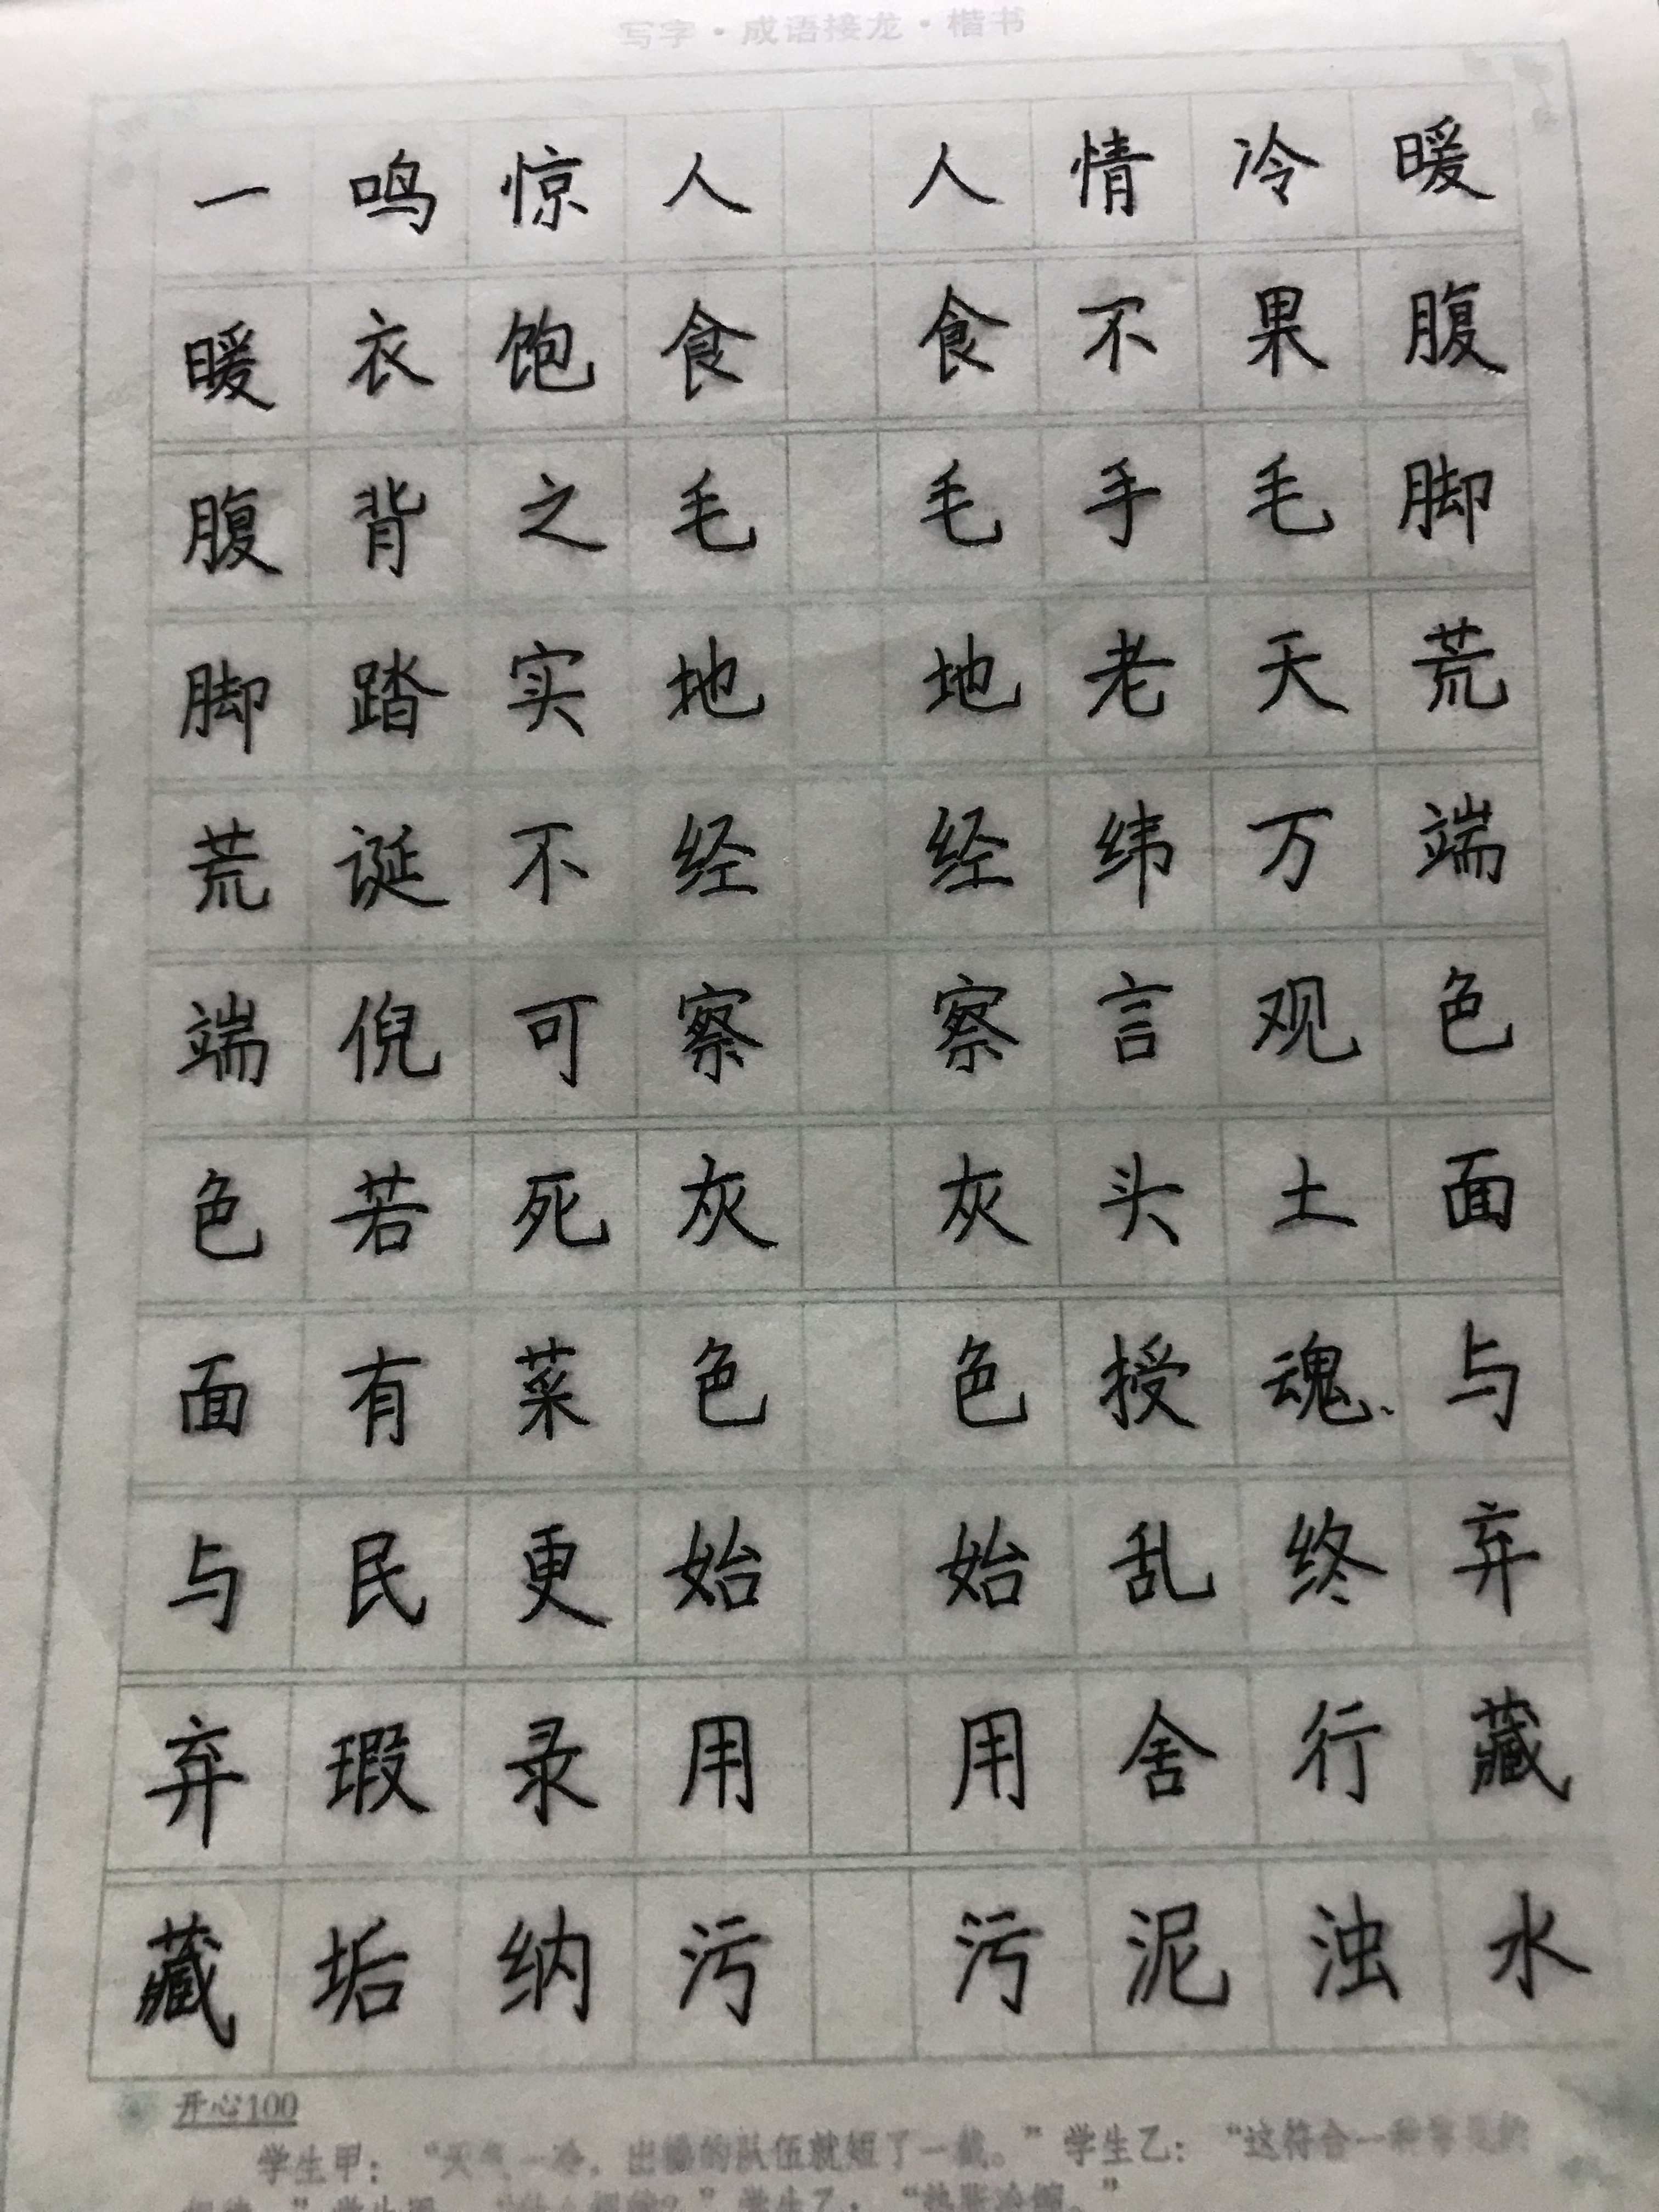 写字·成语接龙·楷书
一鸣惊人 人情冷暖
暖衣饱食 食不果腹
腹背之毛 毛手毛脚
脚踏实地 地老天荒
荒诞不经 经纬万端
端倪可察 察言观色
色若死灰 灰头土面
面有菜色 色授魂、与
与民更始 始乱终弃
弃瑕录用 用舍行藏
藏垢纳污 污泥浊水
开心100
学生甲：“天气一冷，出操的队伍就短了一截。”学生乙：“这符合一种常见的
”学生甲：“什么规律？”学生乙：“热胀冷缩。”